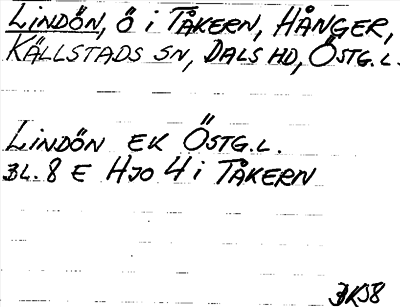 LINDÖN, Ö I TÅKERN, HÅNGER,
KÄLLSTADS SN, DALS HD, ÖSTG.L.
LINDÖN EK ÖSTG.L.
BL. 8 E HJO 4 I TÅKERN